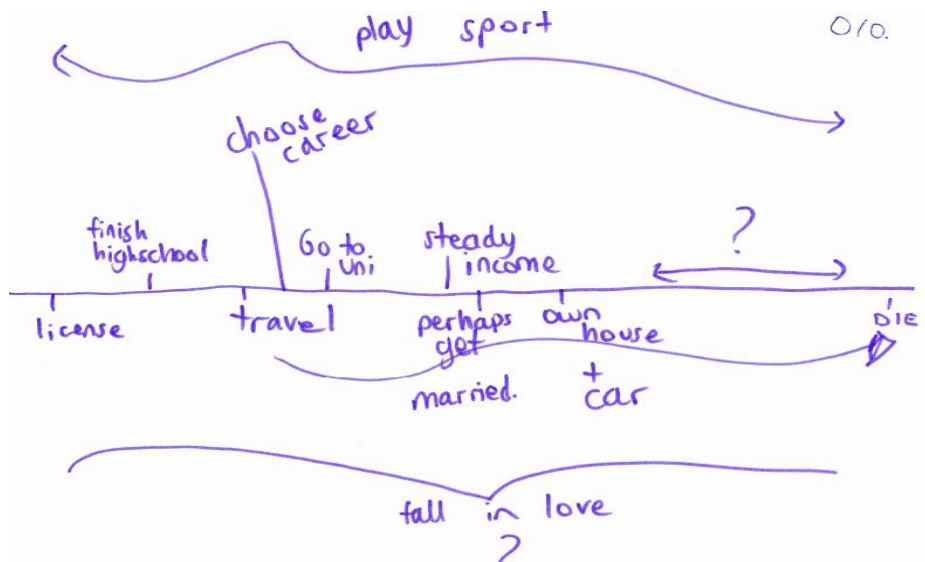 play sport
010.
choose
career
finish
highschool
Go to
Uni
steady
income
?
license
travel
perhaps
get
married.
own
house
+
car
DIE
fall in love
?